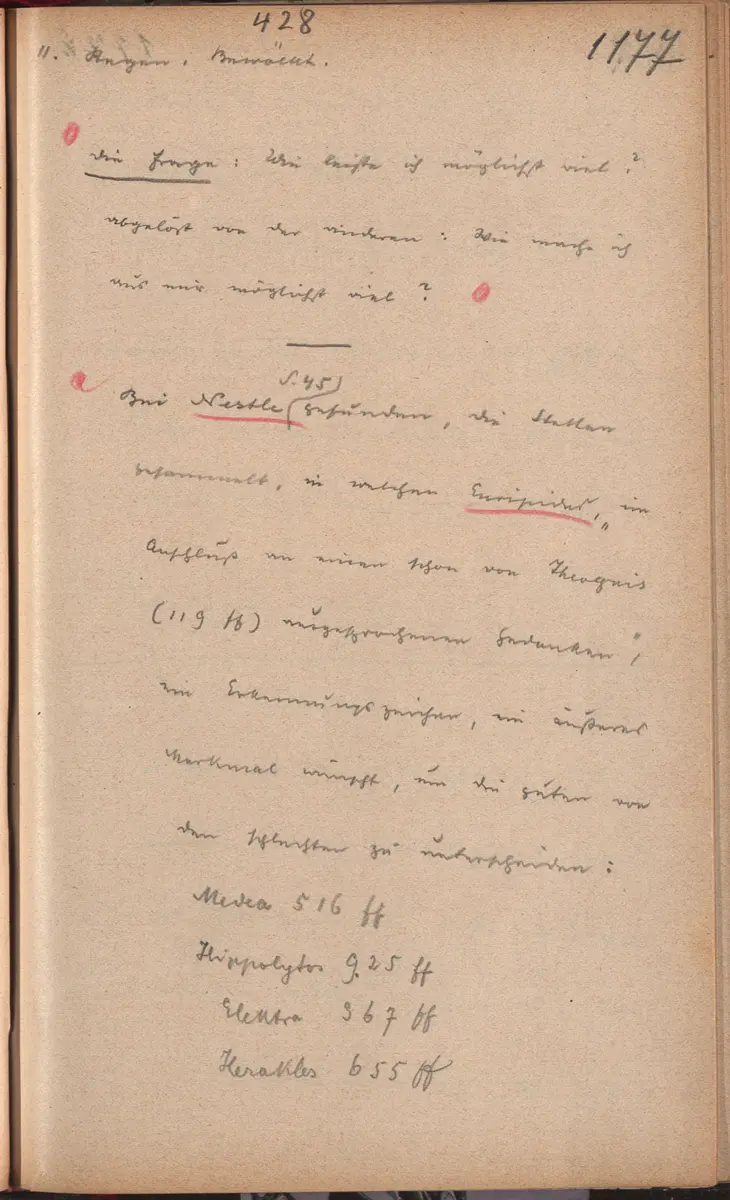 428
1177
11. Regen. Bewölkt.
Die Frage: Wie leiste ich möglichst viel?
abgelöst von der anderen: Wie mache ich
aus mir möglichst viel?
S. 45)
Bei Nestle gefunden, die Stellen
gesammelt, in welchen Euripides, „im
Anschluß an einen schon von Theognis
(119 ff) ausgesprochenen Gedanken",
ein Erkennungszeichen, ein äußeres
Merkmal wünscht, um die guten von
den schlechten zu unterscheiden:
Medea 516 ff
Hippolytos 925 ff
Elektra 367 ff
Herakles 655 ff